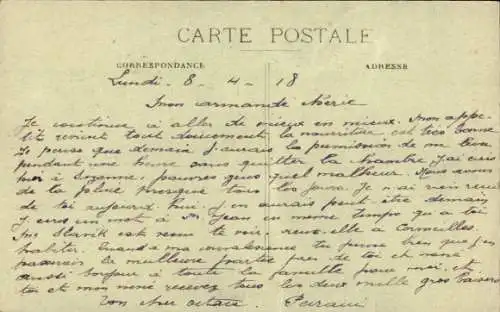 CARTE POSTALE
CORRESPONDANCE
ADRESSE
Lundi - 8 - 4 - 18
Mon armande chérie
Je continue à aller de mieux en mieux. Mon appe-
tit revient tout doucement la nourriture est très bonne
Je pense que demain j'aurais la permission de me lever
pendant une heure sans quitter la chambre J'ai ecris
à Suzanne, pauvres quel malheur. Nous avons
de la pluie presque tous les jours. Je n'ai rien reçu
de toi aujourd'hui. J'en aurais peut être demain
J'ecris un mot à Mr Jean en meme temps qu'a toi
est venu te voir. à Cormeilles
habiter. Quand a ma convalescence tu pense bien que j'en
passerais la meilleure partie près de toi et néné
aussi bonjour à toute la famille pour moi. et
toi et mon néné recevez tous les deux mille gros baisers
Ton cher